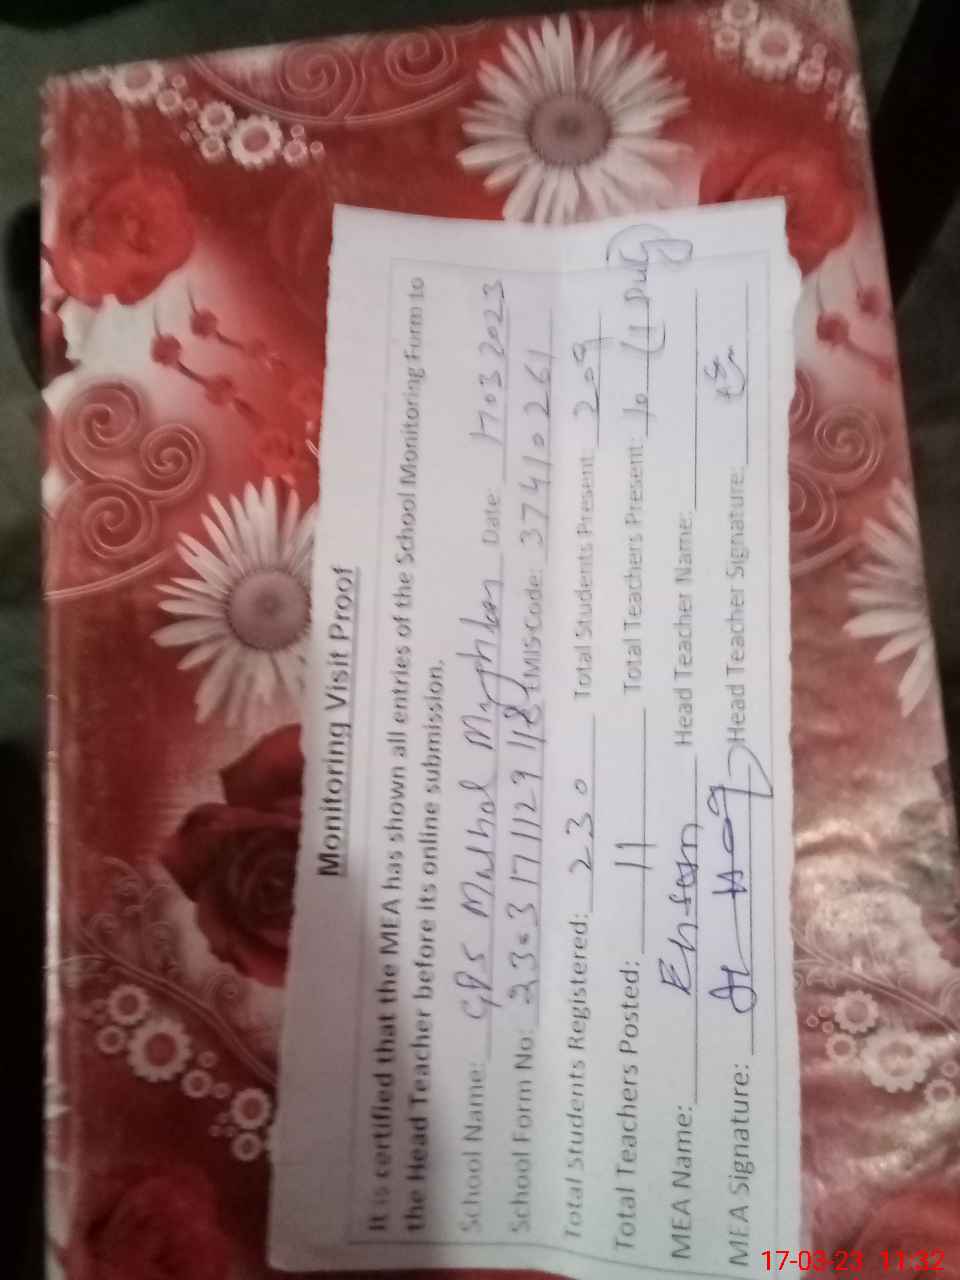 Monitoring Visit Proof
It is certified that the MEA has shown all entries of the School Monitoring Form to
the Head Teacher before its online submission.
School Name: GPS Malhal Mughlan Date: 17032023
School Form No: 230317112911 EMIScode: 37410261
Total Students Registered: 230 Total Students Present 209
Total Teachers Posted: 11 Total Teachers Present: 10
MEA Name: Ehsan Head Teacher Name:
MEA Signature: Head Teacher Signature:
17-03-23 11:32